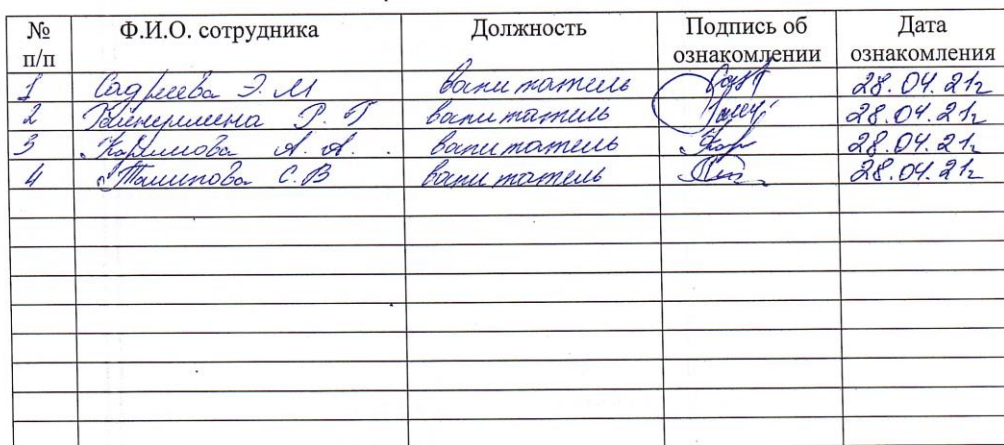 № п/п Ф.И.О. сотрудника Должность Подпись об ознакомлении Дата ознакомления
1 Садриева Э. М воспитатель 28.04.21г
2 Р. Г воспитатель 28.04.21г
3 Каримова А. А. воспитатель 28.04.21г
4 Талипова С. В воспитатель 28.04.21г